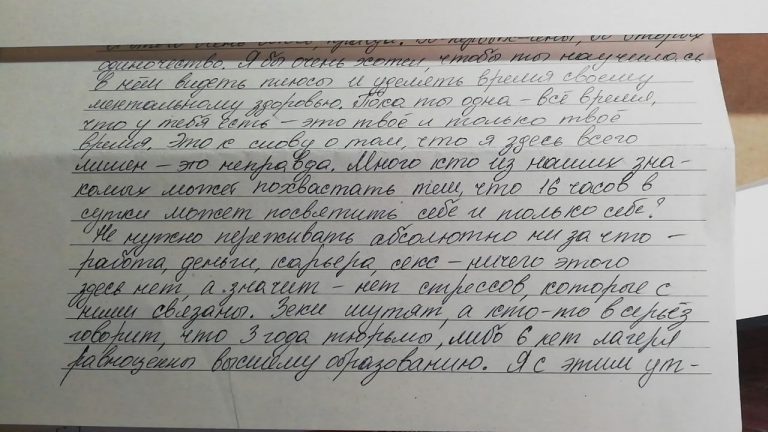 одиночество. Я бы очень хотел, чтобы ты научилась
в нём видеть плюсы и уделять время своему
ментальному здоровью. Пока ты одна – всё время,
что у тебя есть – это твоё и только твоё
время. Это к слову о том, что я здесь всего
лишен – это неправда. Много кто из наших зна-
комых может похвастать тем, что 16 часов в
сутки может посвятить себе и только себе?
Не нужно переживать абсолютно ни за что –
работа, деньги, карьера, секс – ничего этого
здесь нет, а значит – нет стрессов, которые с
ними связаны. Зеки шутят, а кто-то в серьёз
говорит, что 3 года тюрьмы, либо 6 лет лагеря
равноценны высшему образованию. Я с этим ут-